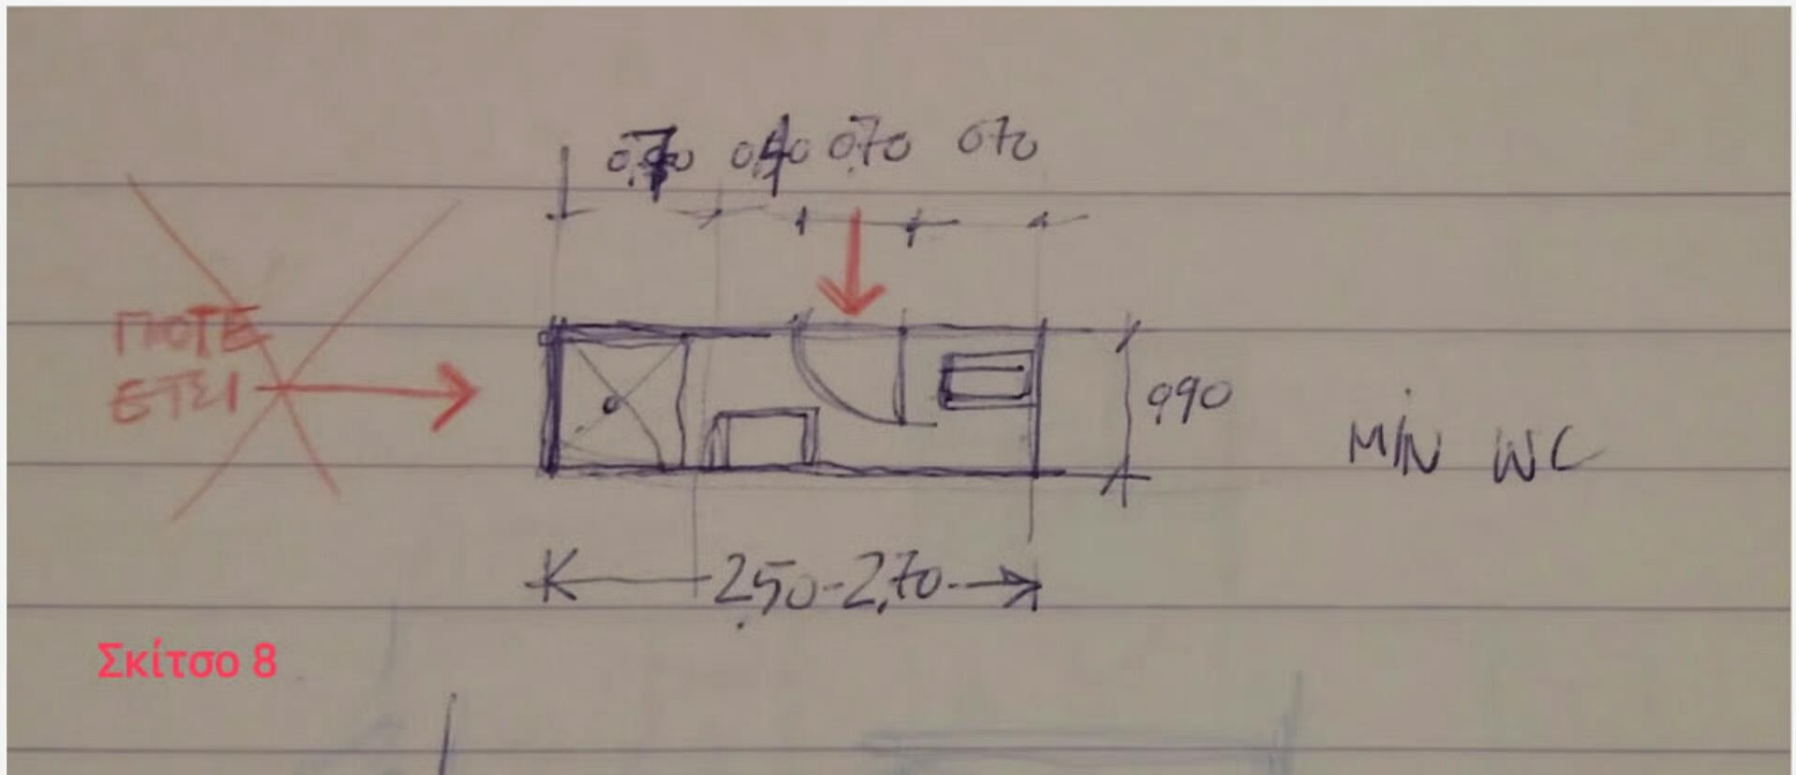 0,70 070
ΠΟΤΕ
ΕΤΣΙ
0,90
MIN WC
2,50-2,70
Σκίτσο 8